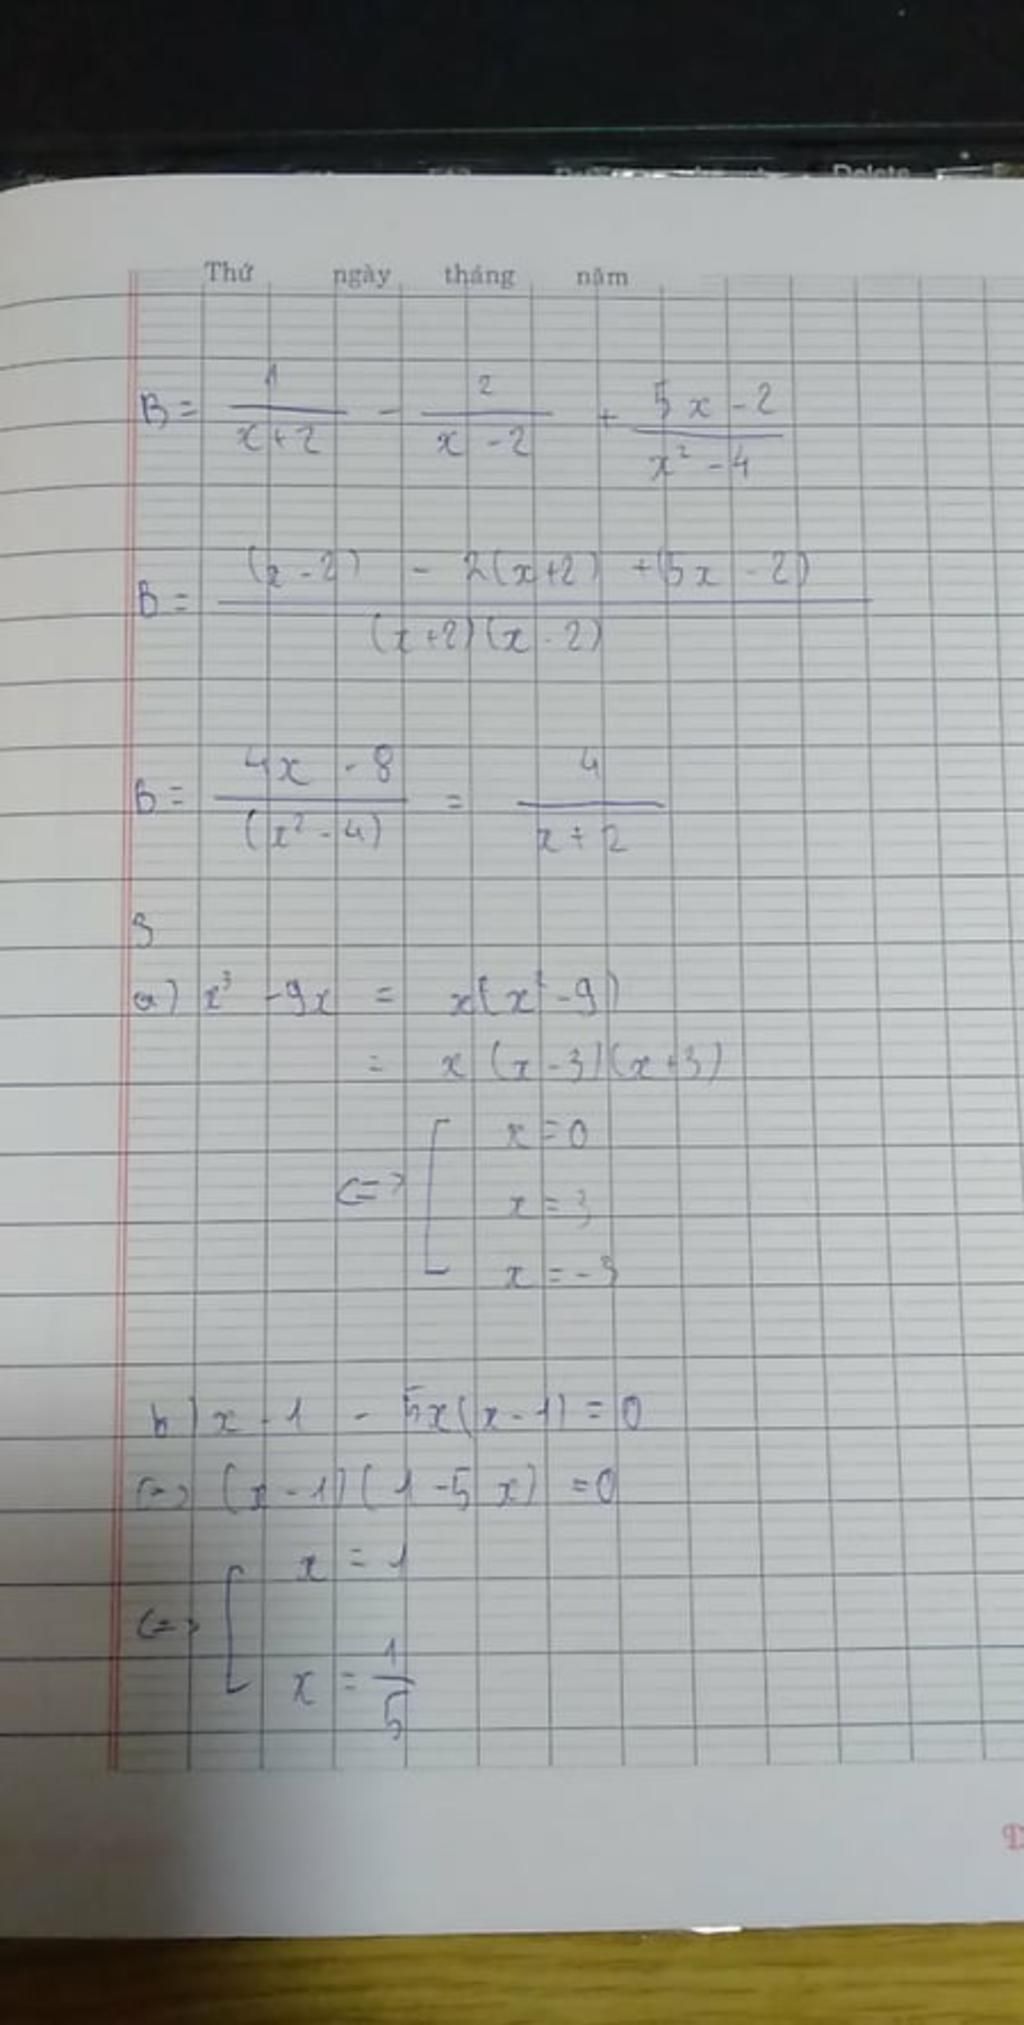 Delete
Thứ ngày tháng năm
B = 1/(x+2) - 2/(x-2) + (5x-2)/(x²-4)
B = ((x-2) - 2(x+2) + (5x-2))/((x+2)(x-2))
B = (4x-8)/(x²-4) = 4/(x+2)
3
a) x³ - 9x = x(x²-9)
= x(x-3)(x+3)
<=> [ x = 0
x = 3
x = -3
b) x-1 - 5x(x-1) = 0
<=> (x-1)(1-5x) = 0
<=> [ x = 1
x = 1/5